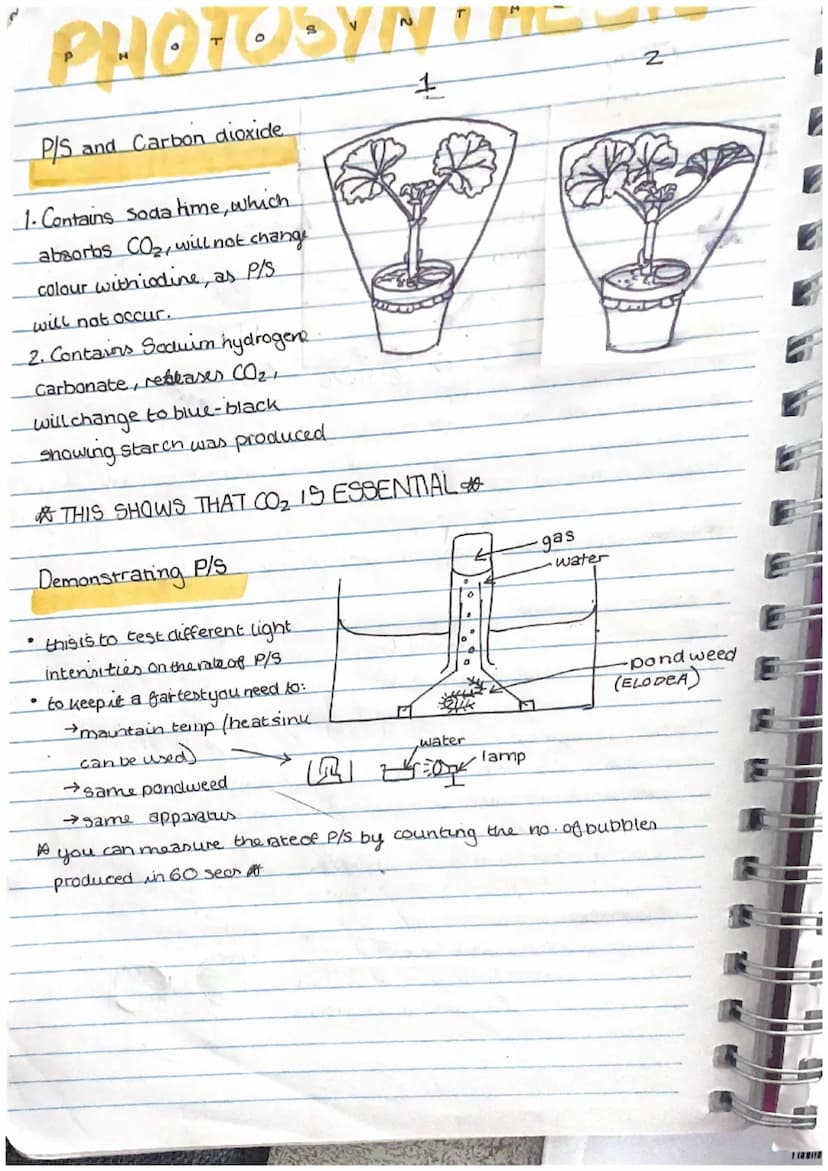 PHOTOSYNTHESIS
PHOTOSYNTH
1
2
P/S and Carbon dioxide
1. Contains soda lime, which
absorbs CO₂, will not change
colour with iodine, as P/S
will not occur.
2. Contains Soduim hydrogen
carbonate, releases CO₂,
will change to blue-black
showing starch was produced
☆ THIS SHOWS THAT CO₂ IS ESSENTIAL ☆
Demonstrating P/S
gas
water
• this is to test different light
intensities on the rate of P/S
pondweed
(ELODEA)
• to keep it a fair test you need to:
→ maintain temp (heat sink
can be used)
water
lamp
→ same pondweed
→ same apparatus
☆ you can measure the rate of P/S by counting the no. of bubbles
produced in 60 secs ☆